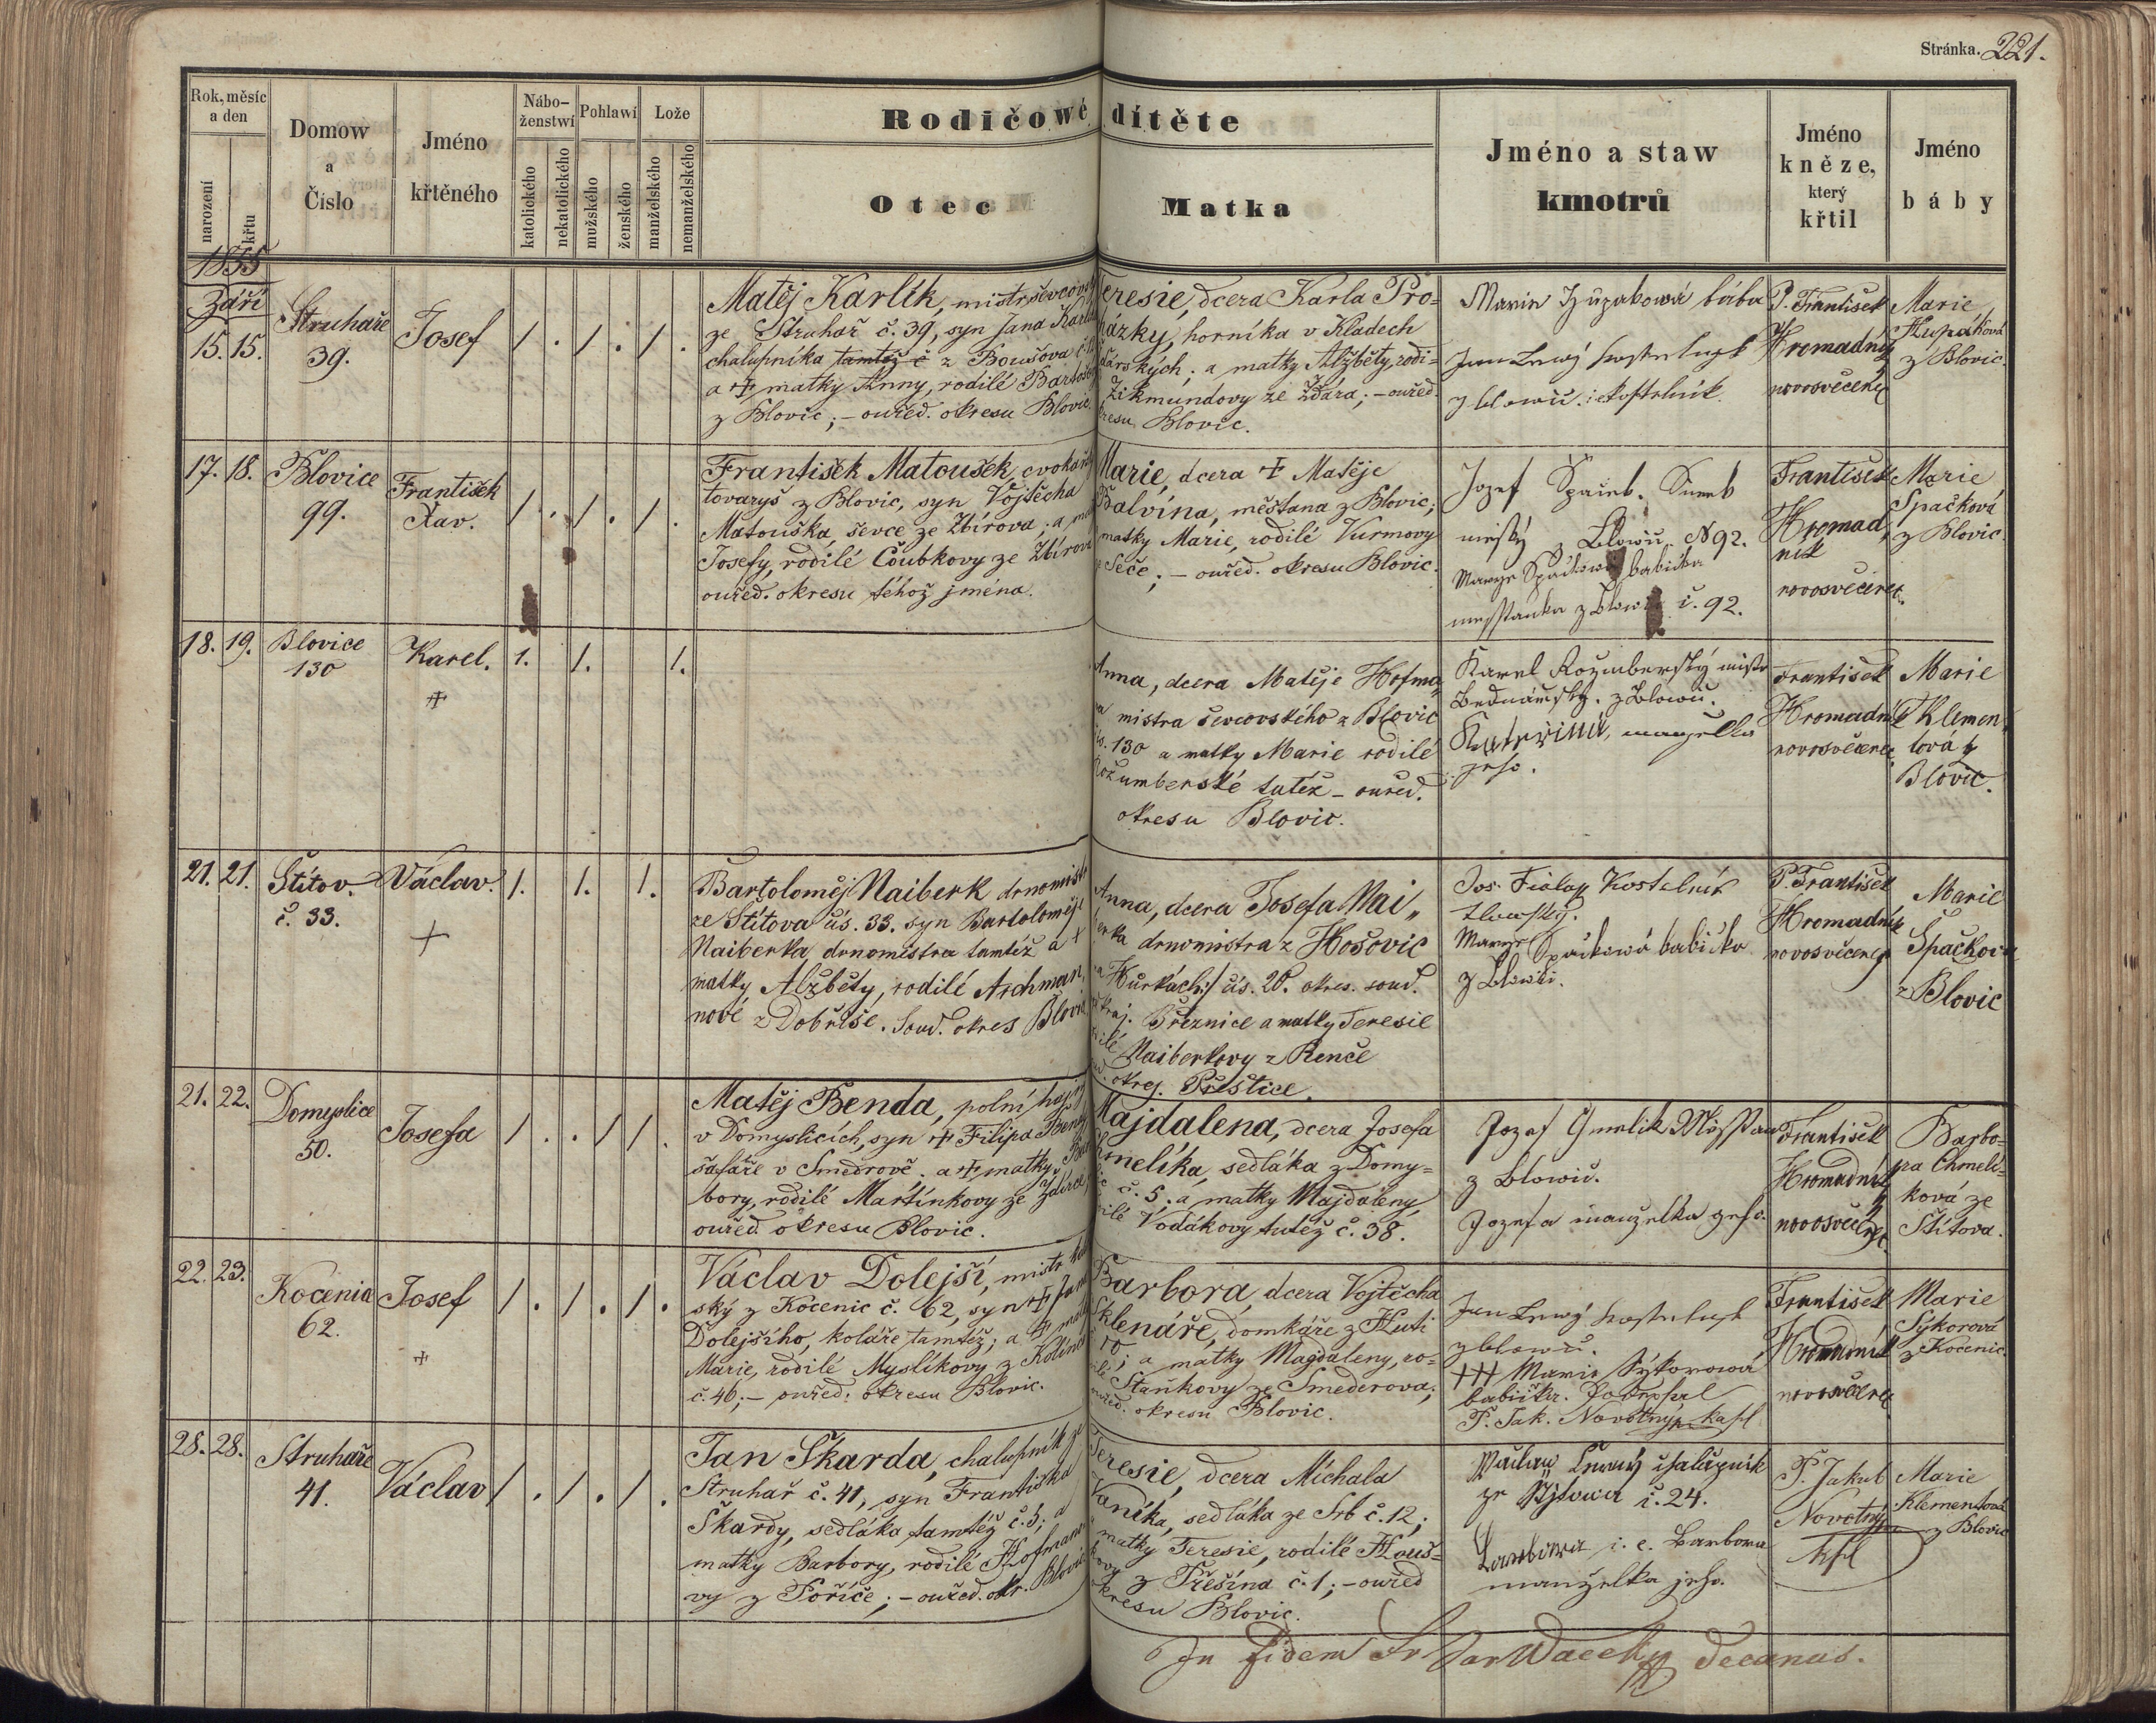 Stránka. 221.
Rok, měsíc
a den
narození
křtu
Domow
a
Číslo
Jméno
křtěného
Nábo-
ženstwí
katolického
nekatolického
Pohlawí
mužského
ženského
Lože
manželského
nemanželského
Rodičowé dítěte
Otec
Matka
Jméno a staw
kmotrů
Jméno
kněze,
který
křtil
Jméno
báby
1855
Září
15. 15.
Struhaře
39.
Josef
1 . 1 . 1 .
Matěj Karlík, mistr ševcovský
ze Struhař č. 39, syn Jana Karlíka
chalupníka tamtéž č z Boušova
a + matky Anny, rodilé
z Blovic; – ouřed. okresu Blovic.
Teresie, dcera Karla Pro=
házky, horníka v Kladech
a matky Alžběty, rodi=
Zikmundovy ze Ždára; – ouřed.
okresu Blovic.
bába
Jan Lewý
kostelník.
P. František
Hromadník
novosvěcenec
Marie
Župáková
z Blovic.
17. 18.
Blovice
99.
František
Xav.
1 . 1 . 1 .
František Matoušek, cvokařský
tovaryš z Blovic, syn Vojtěcha
Matouška, ševce ze Zbirova; a
Josefy, rodilé Čoubkovy ze Zbirova
ouřed. okresu téhož jména.
Marie, dcera + Matěje
Balvína, měšťana z Blovic;
matky Marie, rodilé Vurmovy
ze Seče; – ouřed. okresu Blovic.
Jozef
z Blowic. N92.
babička
z Blowic č. 92.
František
Hromad
ník
novosvěcenec
Marie
Spačková
z Blovic.
18. 19.
Blovice
130
Karel.
+
1. 1. 1.
Anna, dcera Matěje Hofma
na mistra ševcovského z Blovic
čís. 130 a matky Marie rodilé
Rožumberské tutéž – ouřed.
okresu Blovic.
Karel Rožmberský mistr
z Blowic.
Kateřina, manzelka
jeho.
František
Hromadník
novosvěcenec
Marie
Klemen„
tová z
Blovic.
21. 21.
Štítov.
č. 33.
Václav.
+
1. 1. 1.
Bartoloměj Naiberk drnomistr
ze Štítova čís. 33. syn Bartoloměje
Naiberka drnomistra tamtéž a +
matky Alžběty, rodilé Aichman„
nové z Dobříše. Soud. okres Blovic
Anna, dcera Josefa Nai„
berka drnomistra z Hošovic
na Hůrkách/ čís. 20. okres. soud.
kraj. Březnice a matky Teresie
rodilé Naiberkovy z Renče
soud. okres. Přeštice.
Jos. Fiala Kostelník
babička
z Blowic.
P. František
Hromadník
novosvěcenec
Marie
Špačková
z Blovic
21. 22.
Domyslice
50.
Josefa
1 . . 1 1 .
Matěj Benda, polní hajný
v Domyslicích, syn + Filipa Bendy
šafáře v Smedrově; a + matky Bar
bory, rodilé Martínkovy ze Ždírce,
ouřed. okresu Blovic.
Majdalena, dcera Josefa
Chmelíka, sedláka z Domy=
č. 5; a matky Majdaleny,
rodilé Vodákovy tutéž č. 38.
Jozef
z Blowic.
Jozefa manzelka geho.
František
Hromadník
novosvěcenec
Barbo=
ra Chmelí=
ková ze
Štítova.
22. 23.
Kocenia
62.
Josef
+
1 . 1 . 1 .
Václav Dolejší, mistr
ský z Kocenic č. 62, syn + Jana
Dolejšího, koláře tamtéž; a + matky
Marie, rodilé Myslíkovy z Kolínce
č. 46; – ouřed. okresu Blovic.
Barbora, dcera Vojtěcha
Sklenáře, domkáře z Huti
10; a matky Magdaleny, ro=
dilé Staňkovy ze Smederova;
ouřed. okresu Blovic.
Jan Lewý
z Blowic.
+++ Marie Sýkorová
babička. Podepsal
P. Jak. Novotný kapl.
František
Hromadník
novosvěcenec
Marie
Sýkorová
z Kocenic.
28. 28.
Struhaře
41.
Václav
1 . 1 . 1 .
Jan Škarda, chalupník ze
Struhař č. 41, syn Františka
Škardy, sedláka tamtéž č. 5; a
matky Barbory, rodilé Hofmano
vy z Poříče; – ouřed. okr. Blovic
Teresie, dcera Michala
Vaníka, sedláka ze Srb č. 12;
a matky Teresie, rodilé Houš=
kovy z Přešína č. 1; – ouřed
okresu Blovic.
Waclaw Lewý chalupník
č. 24.
Barbora i. e. Barbora
manželka jeho.
P. Jakub
Novotný
kpl
Marie
Klementová
z Blovic
In fidem
decanus.